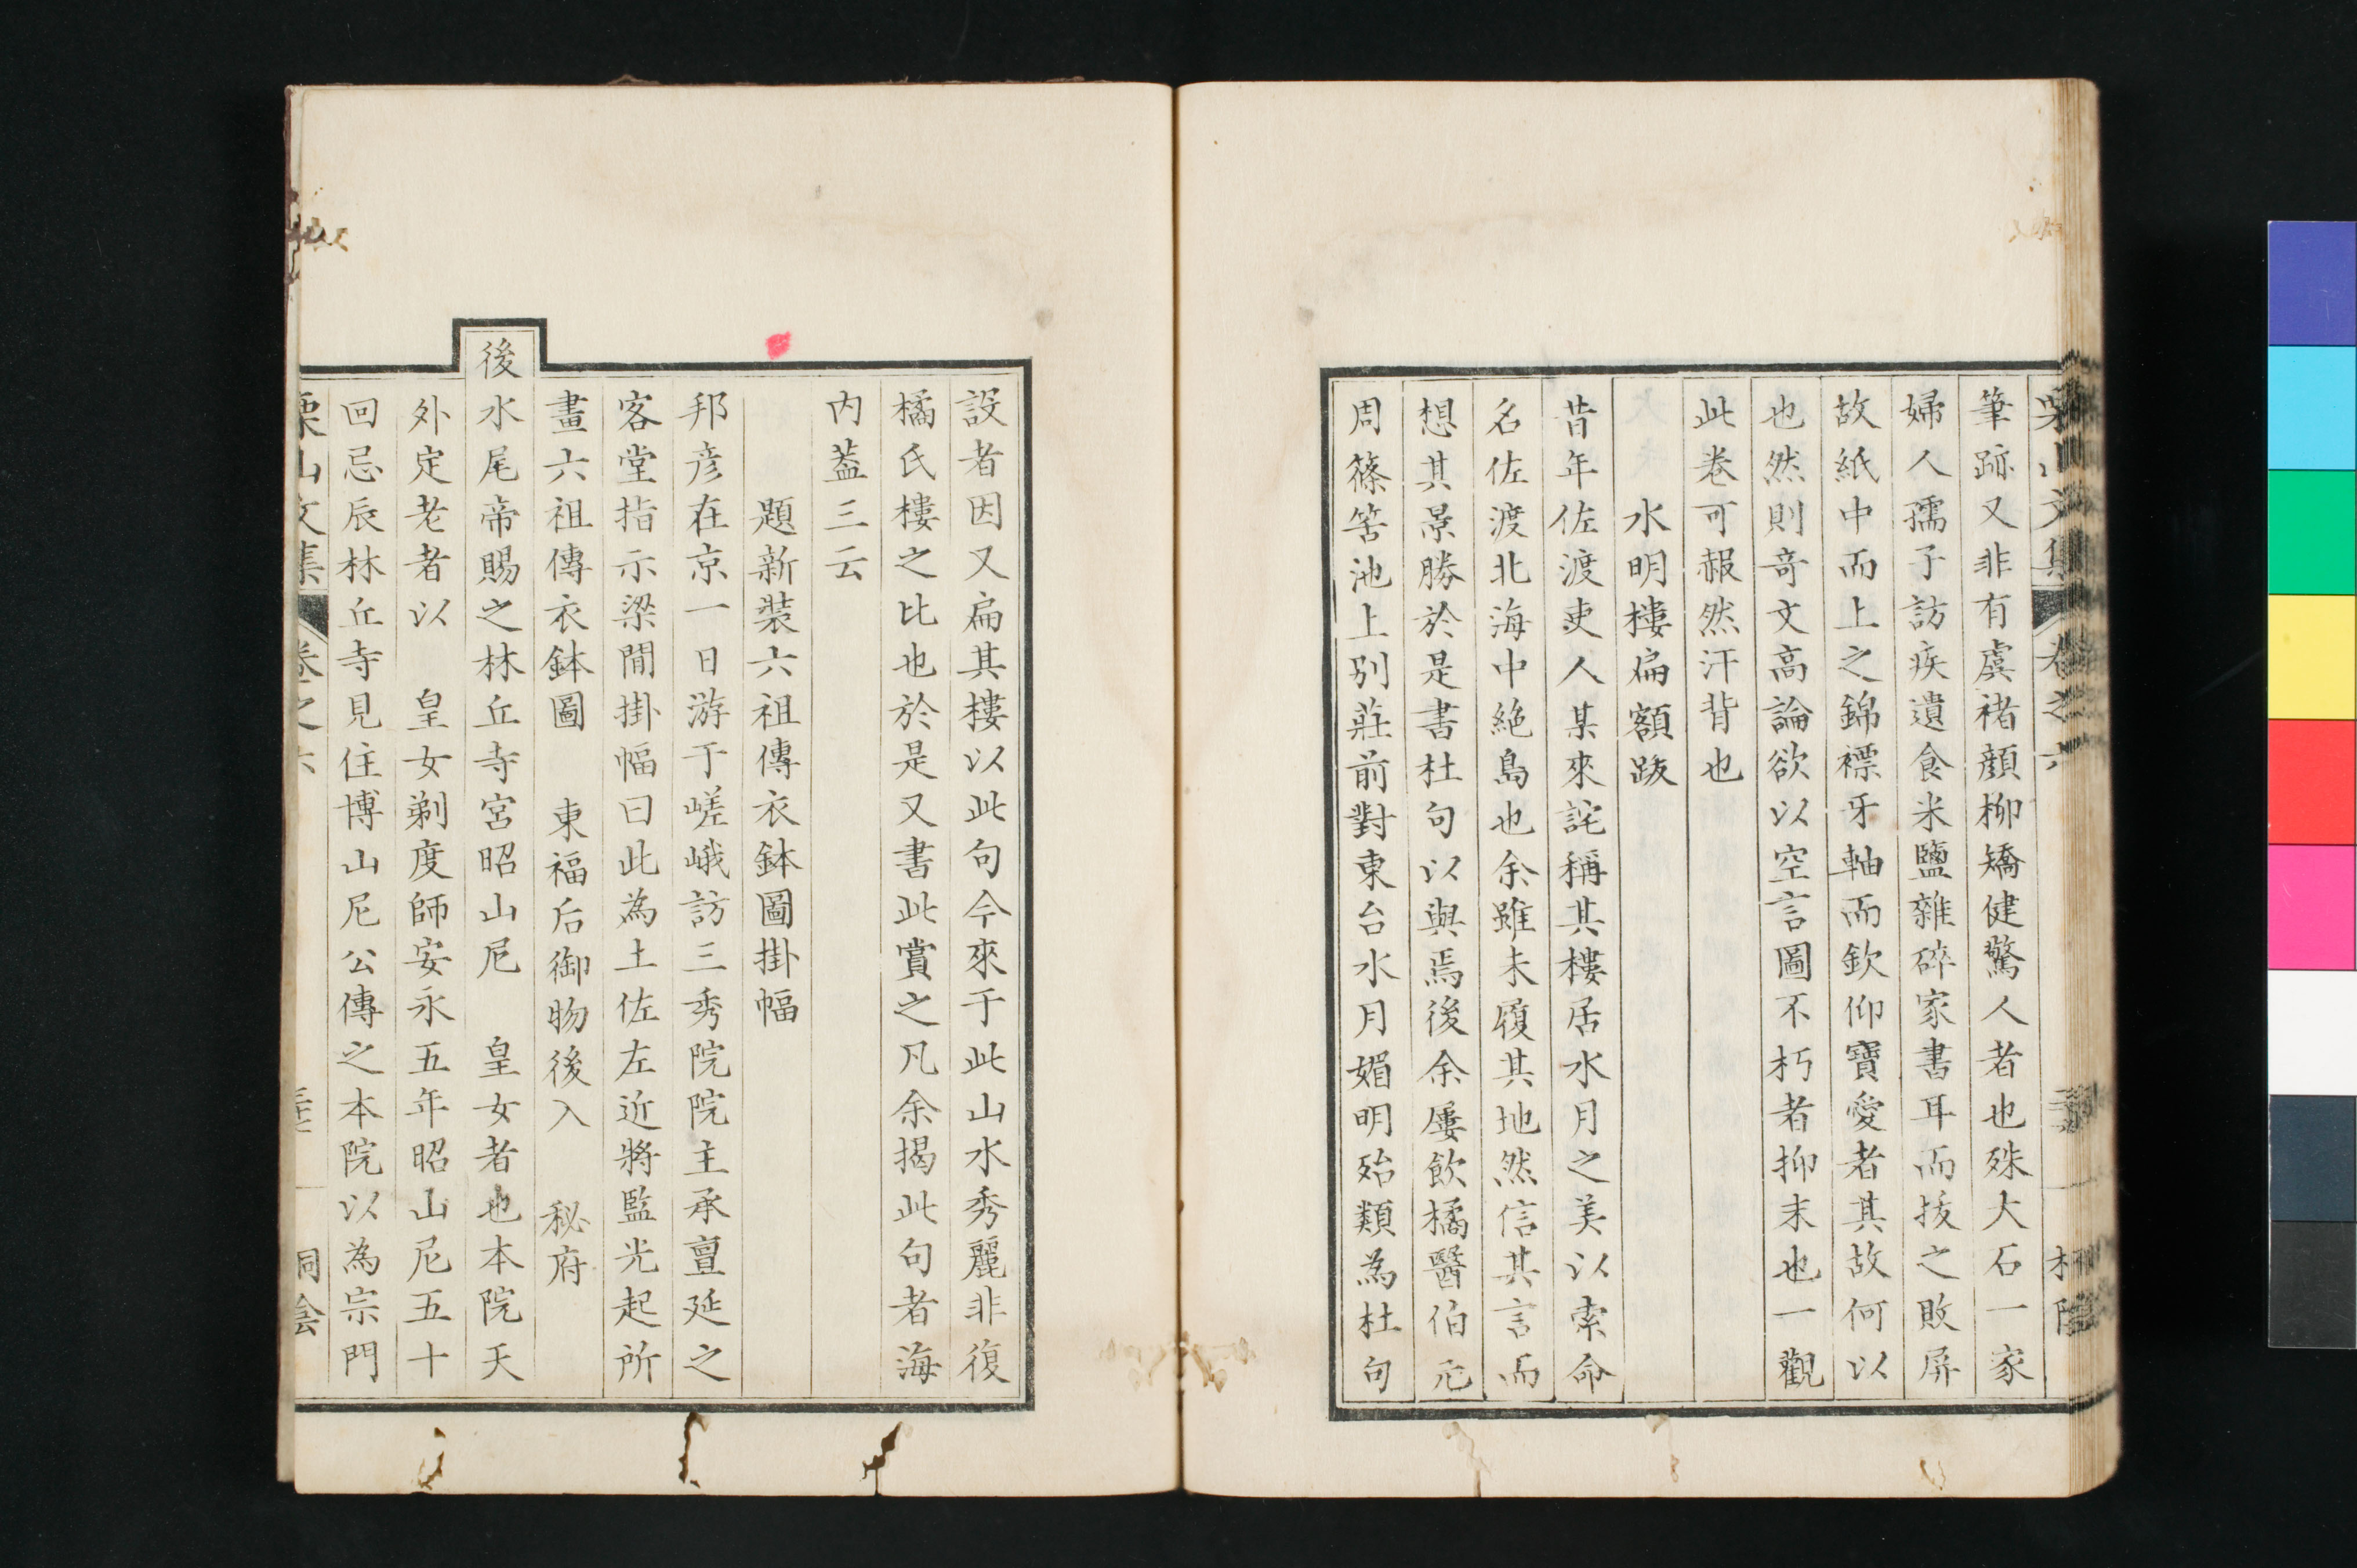 筆跡又非有虞褚顔柳矯健驚人者也殊大石一家
婦人孺子訪疾遺食米鹽雜碎家書耳而拔之敗屏
故紙中而上之錦褾牙軸而欽仰寶愛者其故何以
也然則奇文高論欲以空言圖不朽者抑末也一觀
此卷可赧然汗背也
水明樓扁額跋
昔年佐渡吏人某來詫稱其樓居水月之美以索命
名佐渡北海中絶島也余雖未履其地然信其言而
想其景勝於是書杜句以與焉後余屢飲橘醫伯元
周篠箬池上別莊前對東台水月媚明殆類為杜句
設者因又扁其樓以此句今來于此山水秀麗非復
橘氏樓之比也於是又書此賞之凡余揭此句者海
内蓋三云
題新裝六祖傳衣鉢圖掛幅
邦彦在京一日游于嵯峨訪三秀院院主承亶延之
客堂指示梁間掛幅曰此為土佐左近將監光起所
畫六祖傳衣鉢圖 東福后御物後入 秘府
後水尾帝賜之林丘寺宮昭山尼 皇女者也本院天
外定老者以 皇女剃度師安永五年昭山尼五十
回忌辰林丘寺見住博山尼公傳之本院以為宗門
栗山文集 卷之六